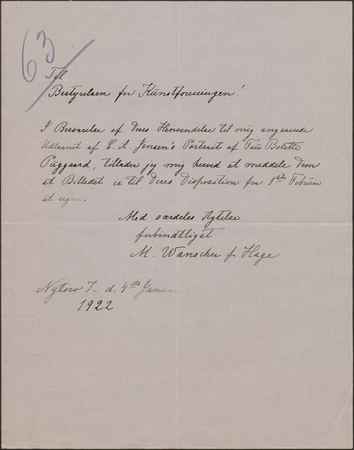 63
Til
Bestyrelsen for "Kunstforeningen"
I Besvarelse af Deres Henvendelse til mig angaaende
Udlaanet af C. A. Jensen's Portrait af Frue Bolette
Puggaard, tillader jeg mig herved at meddele Dem
at Billedet er til Deres Disposition for 1ste Februar
Med særdeles Agtelse
forbindtligst
M. Wanscher f. Hage
Nytorv 7 d. 4de Jan.
1922